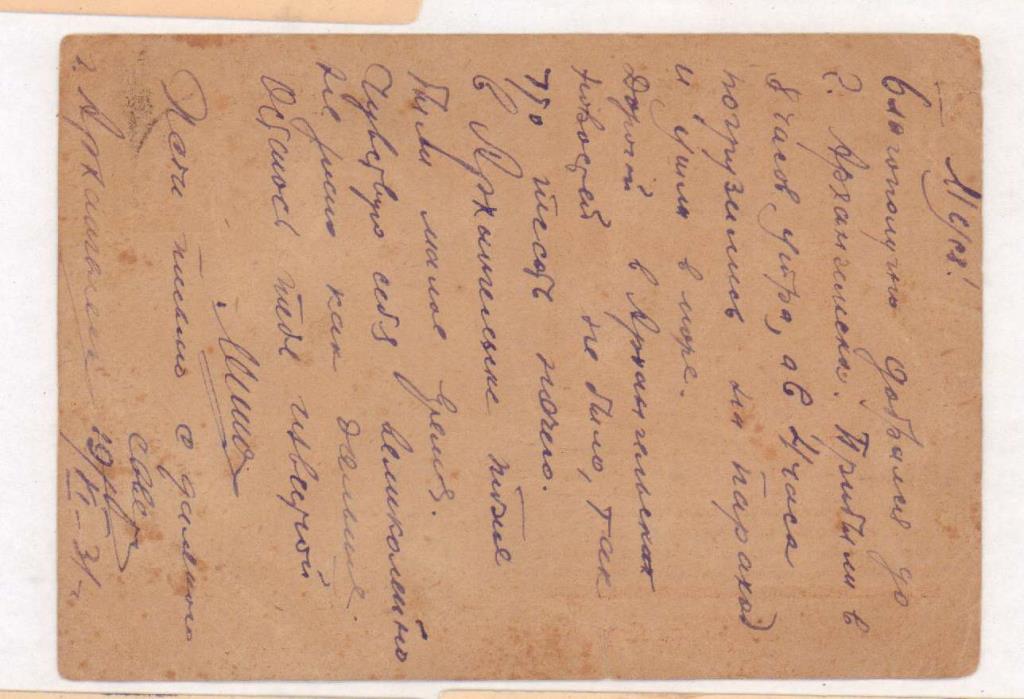 Благополучно добрался до
г. Архангельска. Прибыли в
8 часов утра, а в 4 часа
погрузились на пароход
и ушли в море.
Дорогой в Архангельск
новостей не было, так
что писать нечего.
В Архангельске тоже
были малое время.
Чувствую себя великолепно
не знаю как дальше.
Остаюсь тебе
Миша
Жди письмо с далекого
севера
г. Архангельск 19 VI – 31 г.